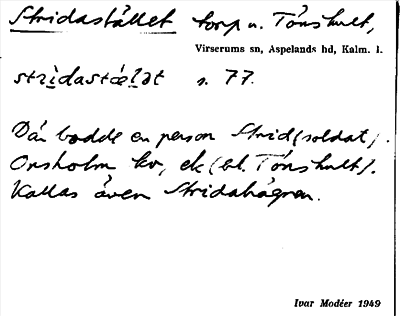 Stridastället torp u. Tönshult,
Virserums sn, Aspelands hd, Kalm. l.
strìdastæ̀lət s. 77.
Där bodde en person Strid (soldat).
Orsholm kv, ek (bl. Tönshult).
Kallas även Stridahagen.
Ivar Modéer 1949